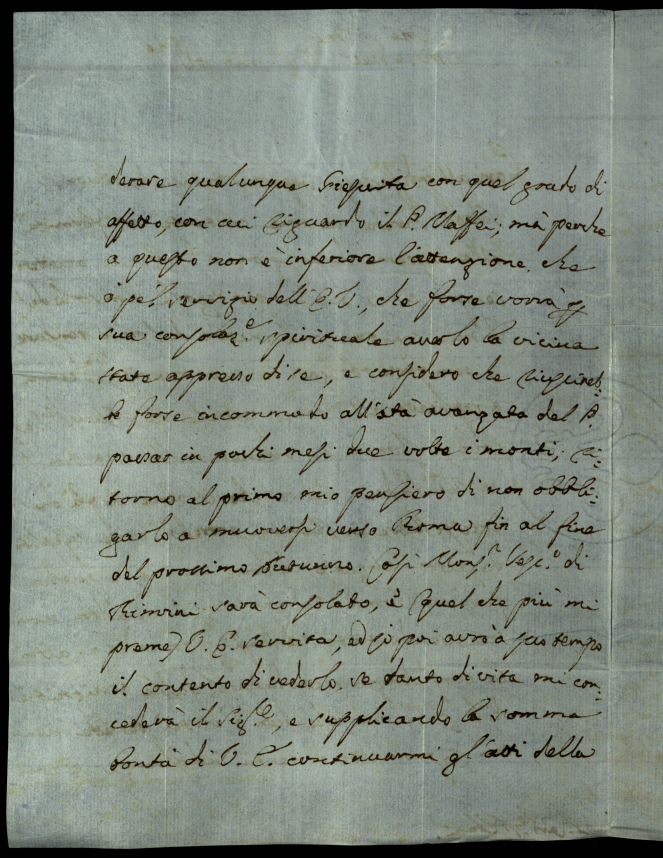 derare qualunque Giesuita con quel grado di
affetto, con cui riguardo il P. Maffei; mà perche
a questo non è inferiore l'attenzione che
ò pel servizio dell' E.V., che forse vorrà
sua consolaz.e spirituale averlo la vicina
state appresso di se, e considero che riuscireb-
be forse incommodo all'età avanzata del P.
passar in pochi mesi due volte i monti, ri-
torno al primo mio pensiero di non obbli-
garlo a muoversi verso Roma fin al fine
del prossimo Autunno. Così Mons.r Vesc.o di
Rimini sarà consolato, e (quel che più mi
preme) V.E. servita, ed io poi avrò a suo tempo
il contento di vederlo, se tanto di vita mi con-
cederà il Sig.re, e supplicando la somma
bontà di V.E. continuarmi gl'atti della